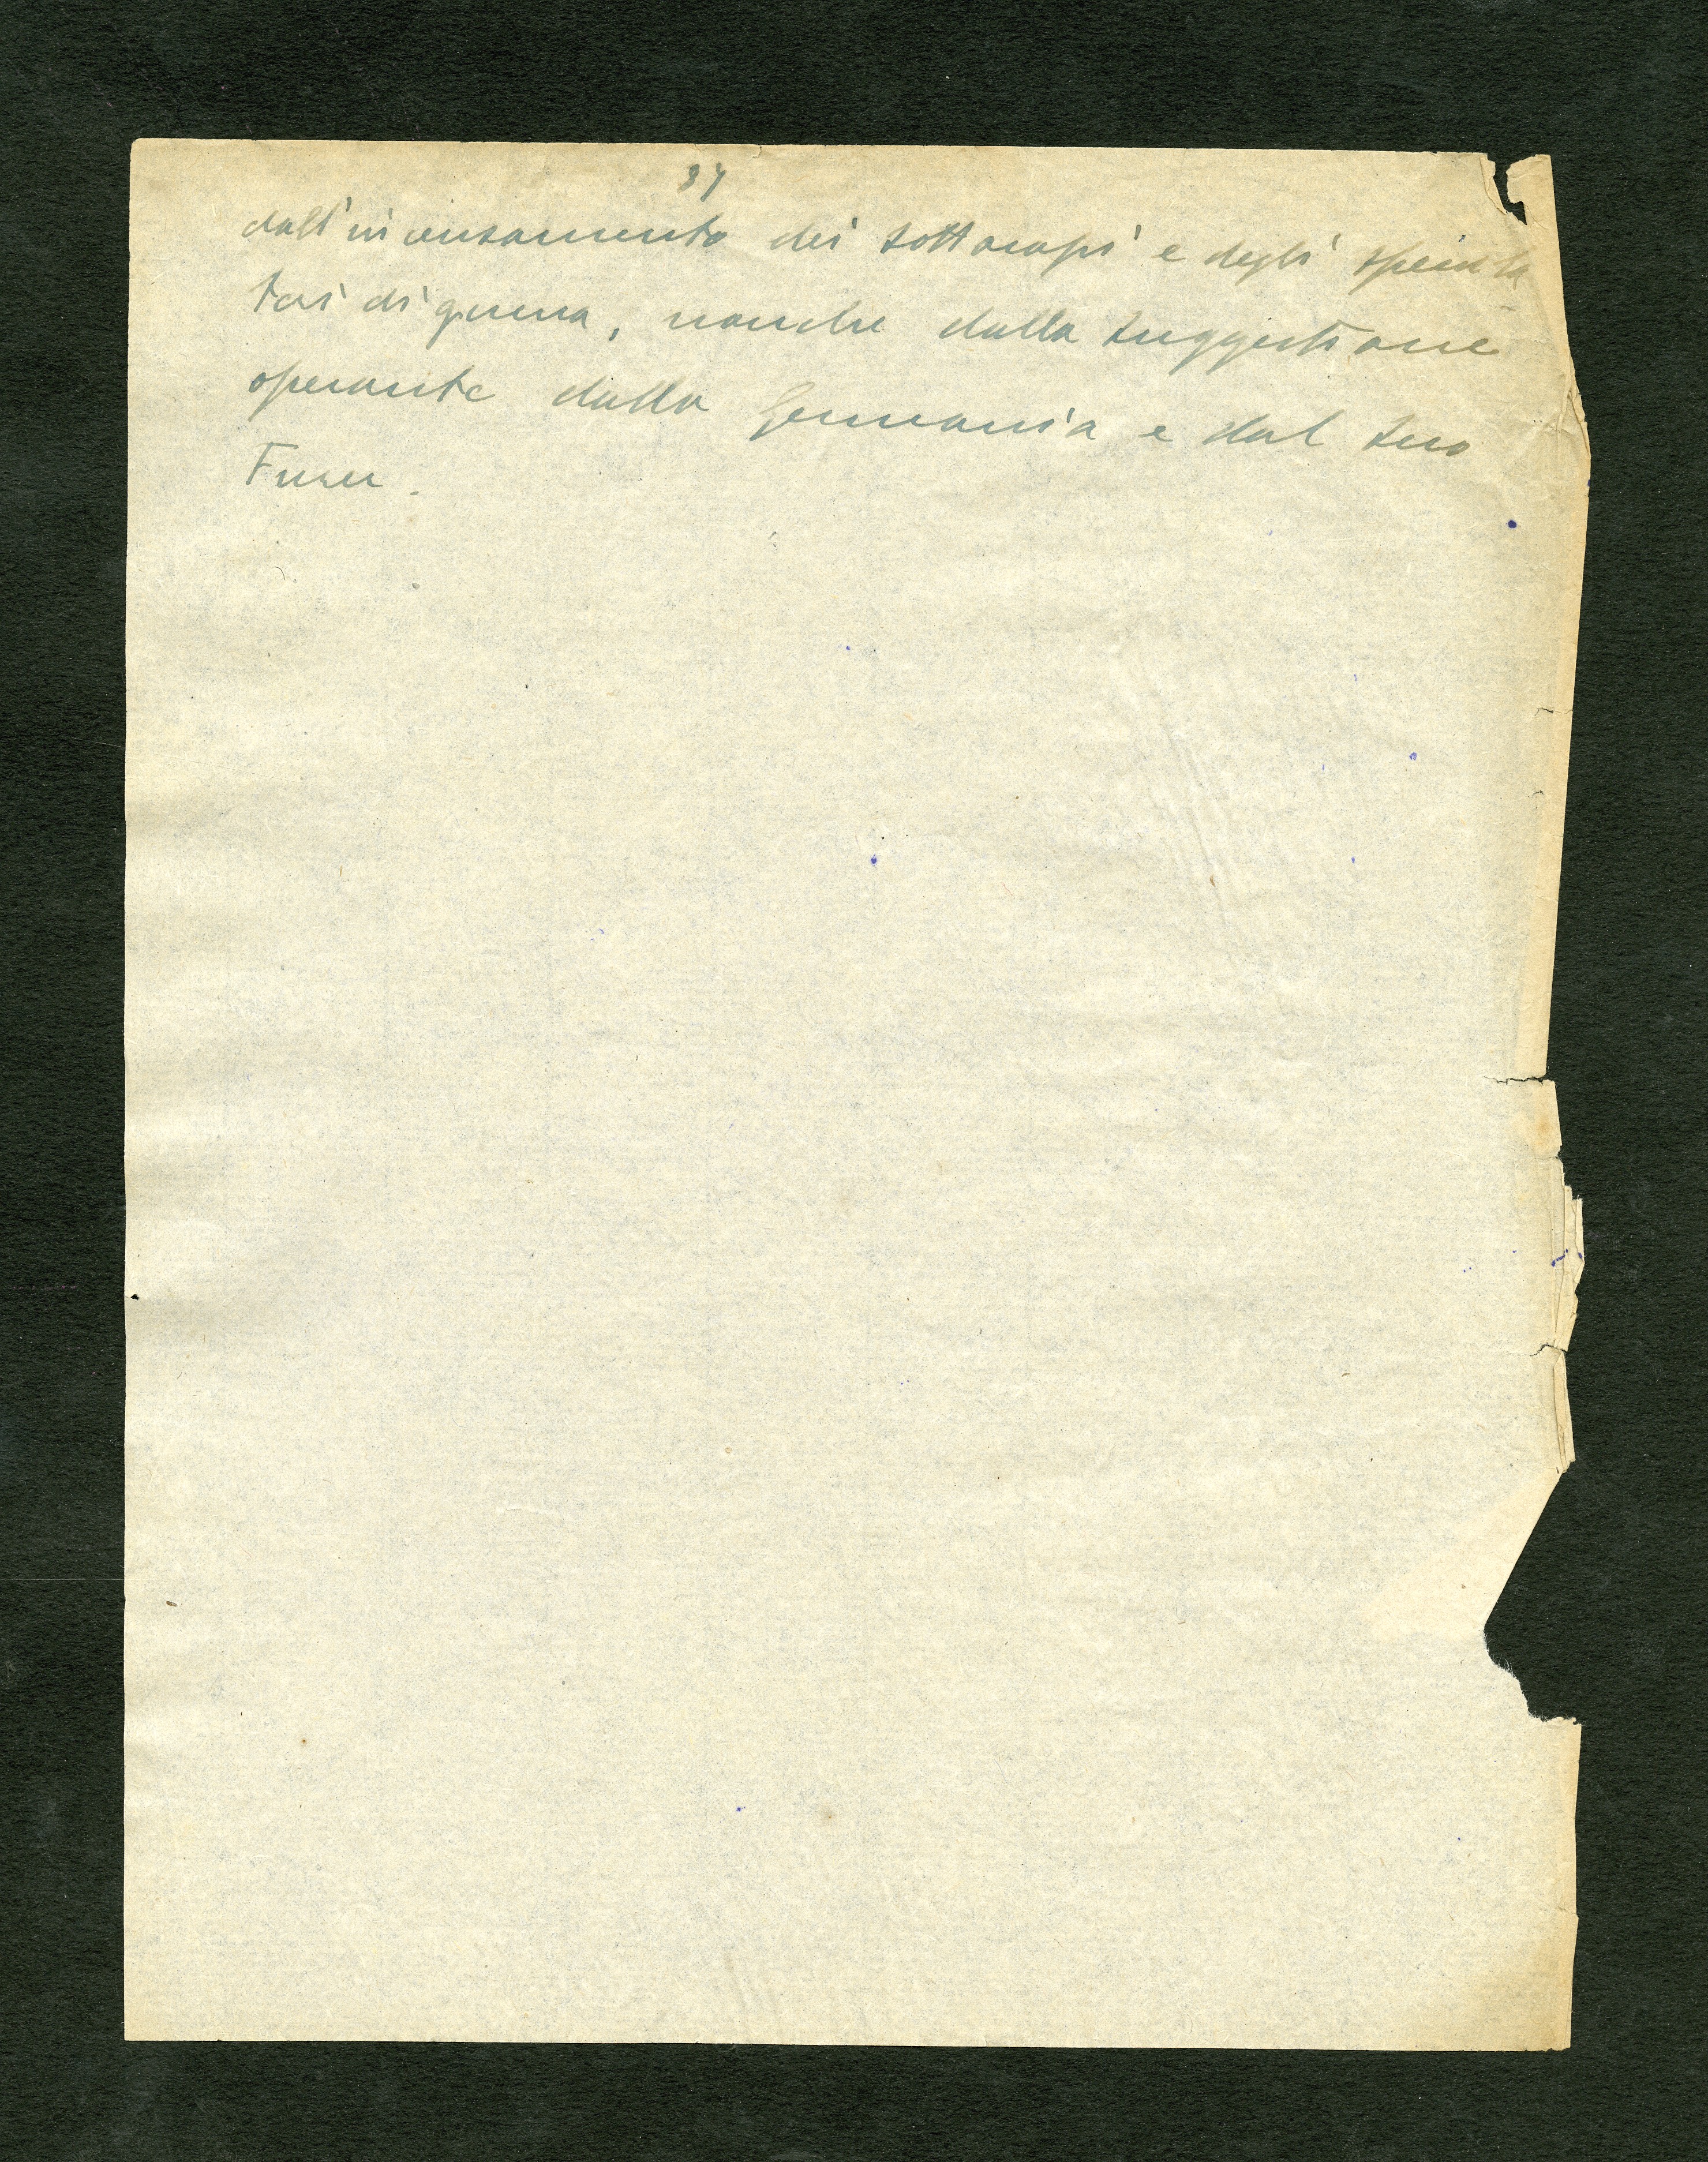 37
dall'incensamento dei sottocapi e degli specula-
tori di guerra, nonche dalla suggestione
operante dalla Germania e dal suo
Furer.